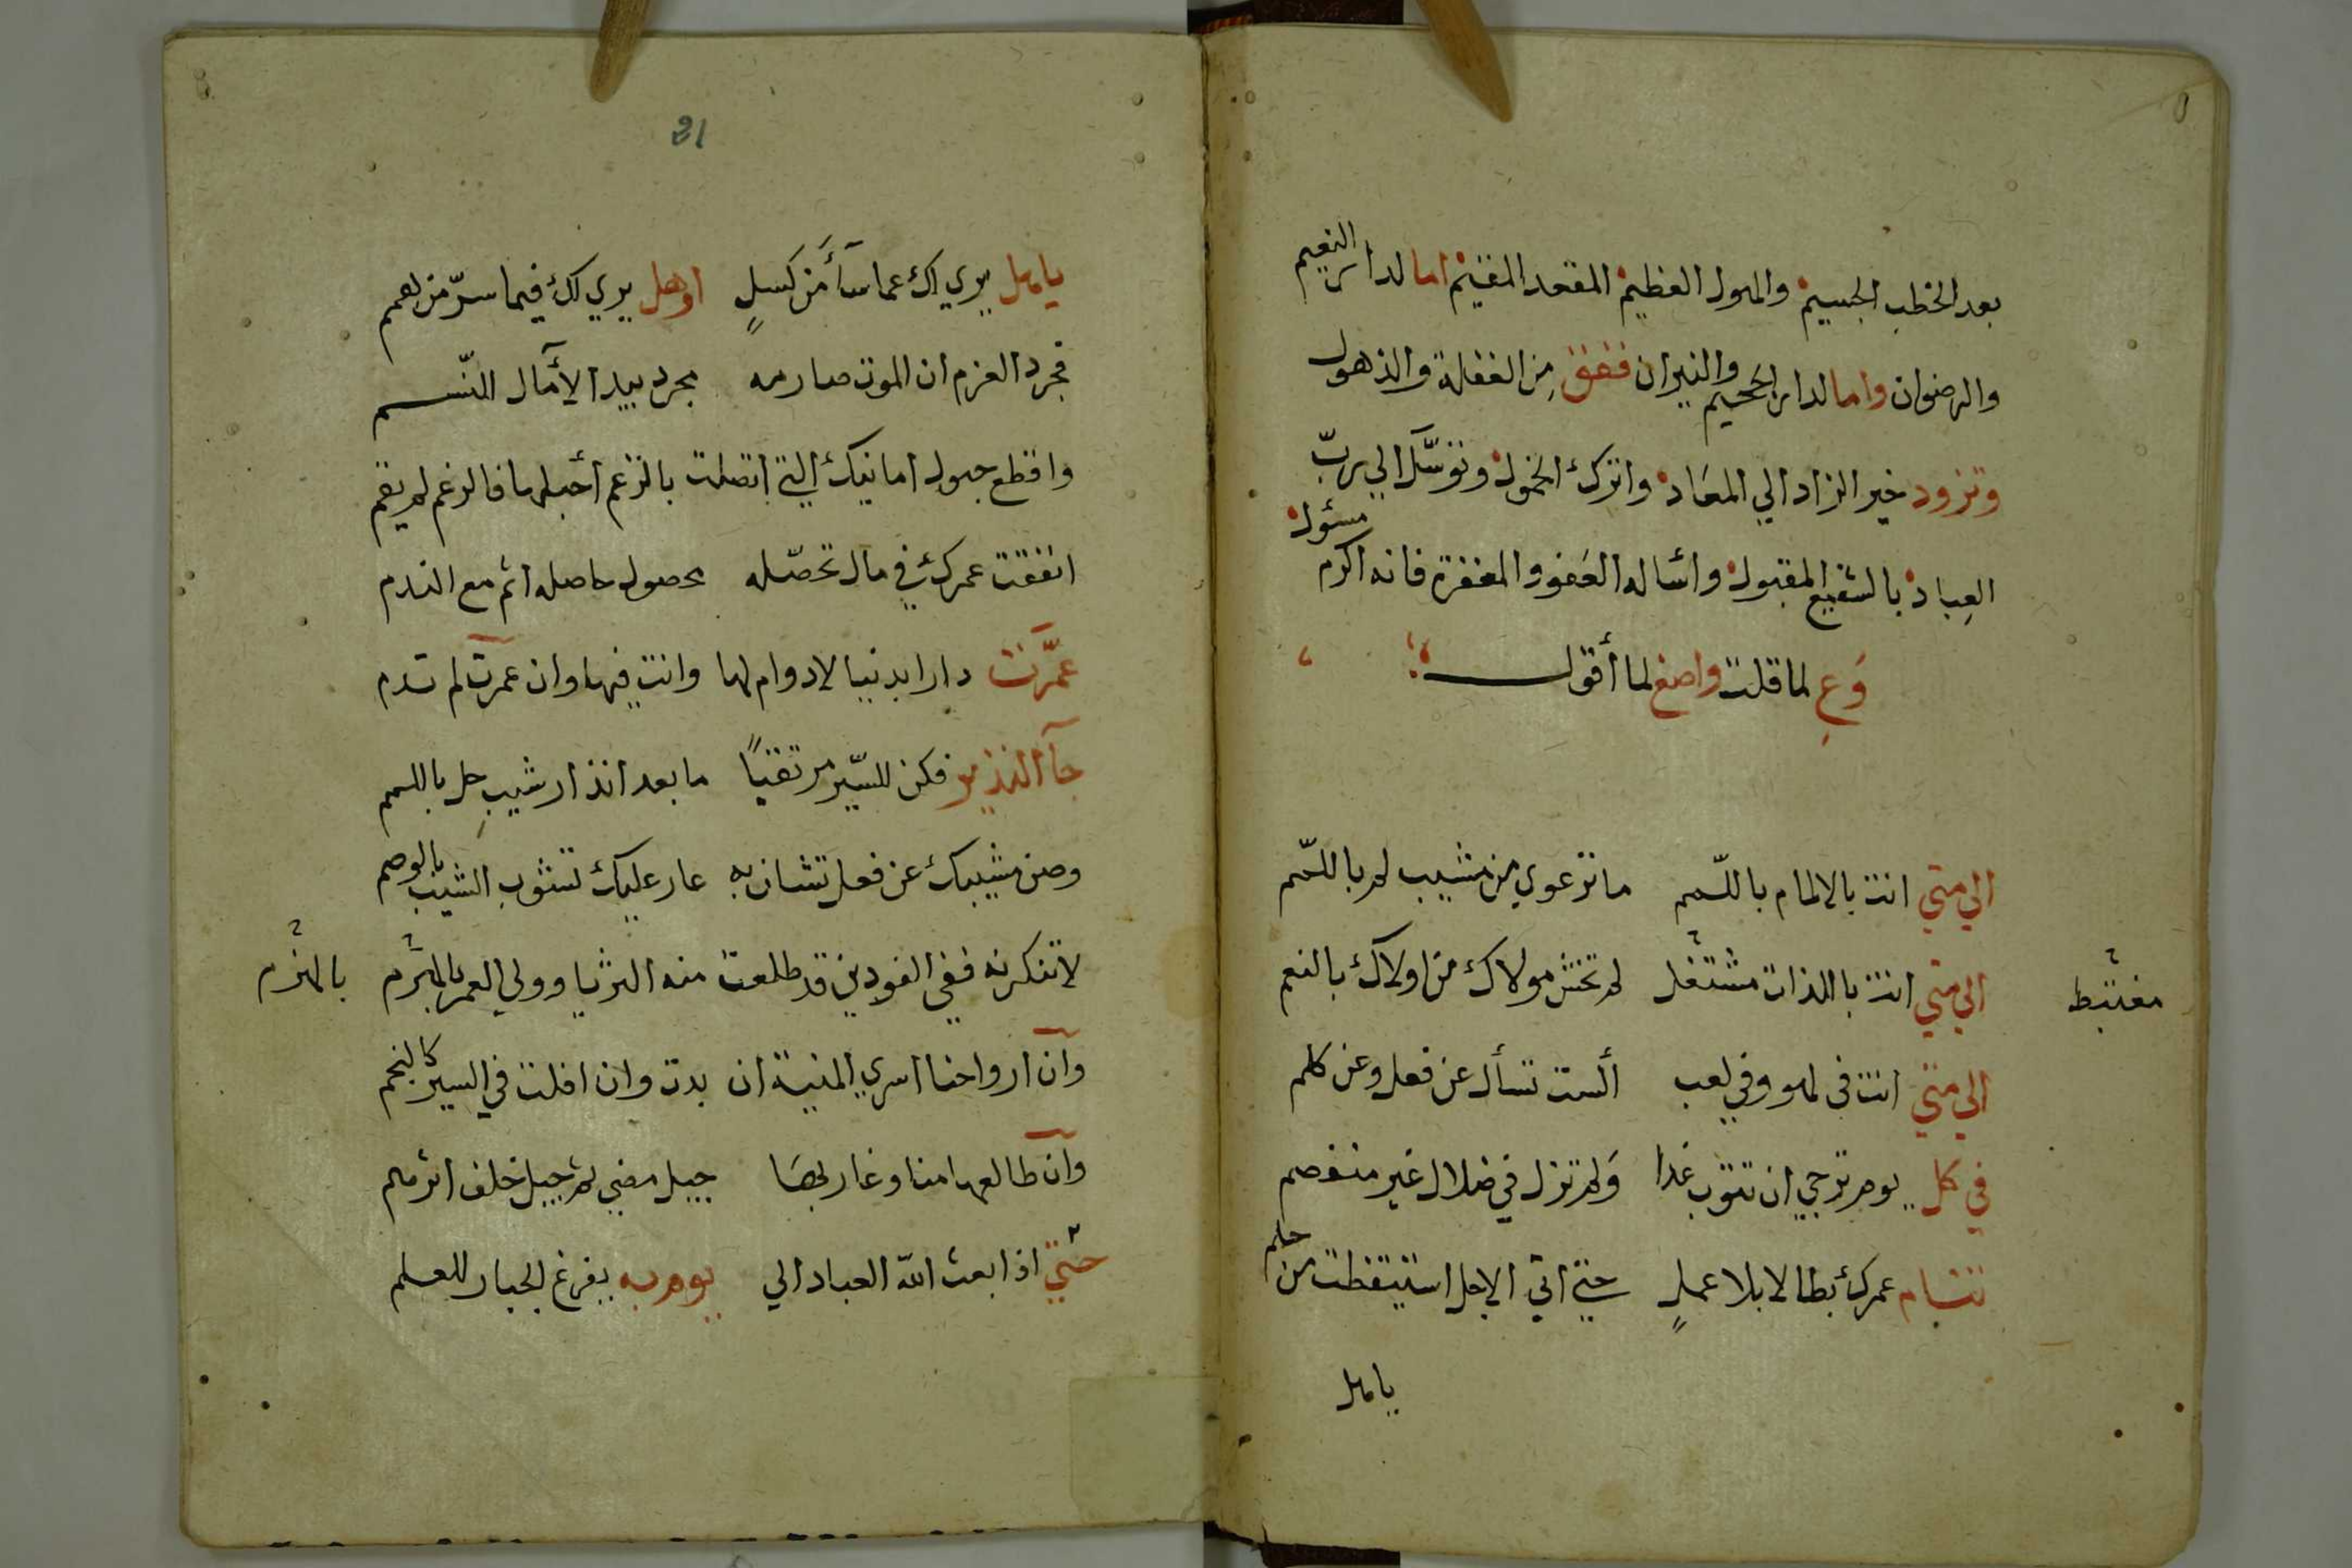 بعد الخطب الجسيم والهول العظيم المقعد المقيم اما لدار النعيم
والرضوان واما لدار الجحيم والنيران ففق من الغفلة والذهول
وتزود خير الزاد الي المعاد واترك الخمول وتوسّل الي ربّ
العباد بالشفيع المقبول واساله العفو والمغفرة فانه اكرم مسئول
وَعِ لما قلت واصغ لما أقول
الي متي انت بالالمام باللّمم ما ترعوي من مشيب لم باللّمم
الي متي انت باللذات مشتغل لم تخش مولاك من اولاك بالنعم
مغتبط
الي متي انت في لهو وفي لعب ألست تسأل عن فعل وعن كلم
في كل يوم ترجي ان تتوب غدا ولم تزل في ضلال غير منفصم
تنام عمرك بطالا بلا عملٍ حتي اتي الاجل استيقظت من حلم
يا هل
21
يا هل يري لك عما سآء من كسلٍ او هل يري لك فيما سرّ من همم
فجرد العزم ان الموت صارمه مجرد بيد الآمال النّسم
واقطع حبول امانيك التي اتصلت بالزعم أحبلها فالزعم لم يقم
انفقت عمرك في مال تحصّله محصول حاصله اثم مع الندم
عمّرت دارا بدنيا لا دوام لها وانت فيها وان عمرت لم تدم
جآ النذير فكن للسّير مرتقبًا ما بعد انذار شيبٍ حل باللمم
وصن مشيبك عن فعل تشان به عار عليك تشوب الشيب بالوصم
لا تنكرنه ففي الفودين قد طلعت منه الثريا وولي العمر بالهرم
بالهرم
وان ارواحنا اسري المنية ان بدت وان افلت في السير كالنجم
وان طالعها منا وغاربها جيل مضي ثم جيل خلف اثرهم
حتي اذا بعث الله العباد الي يوم به يفرغ الجبار للعلم